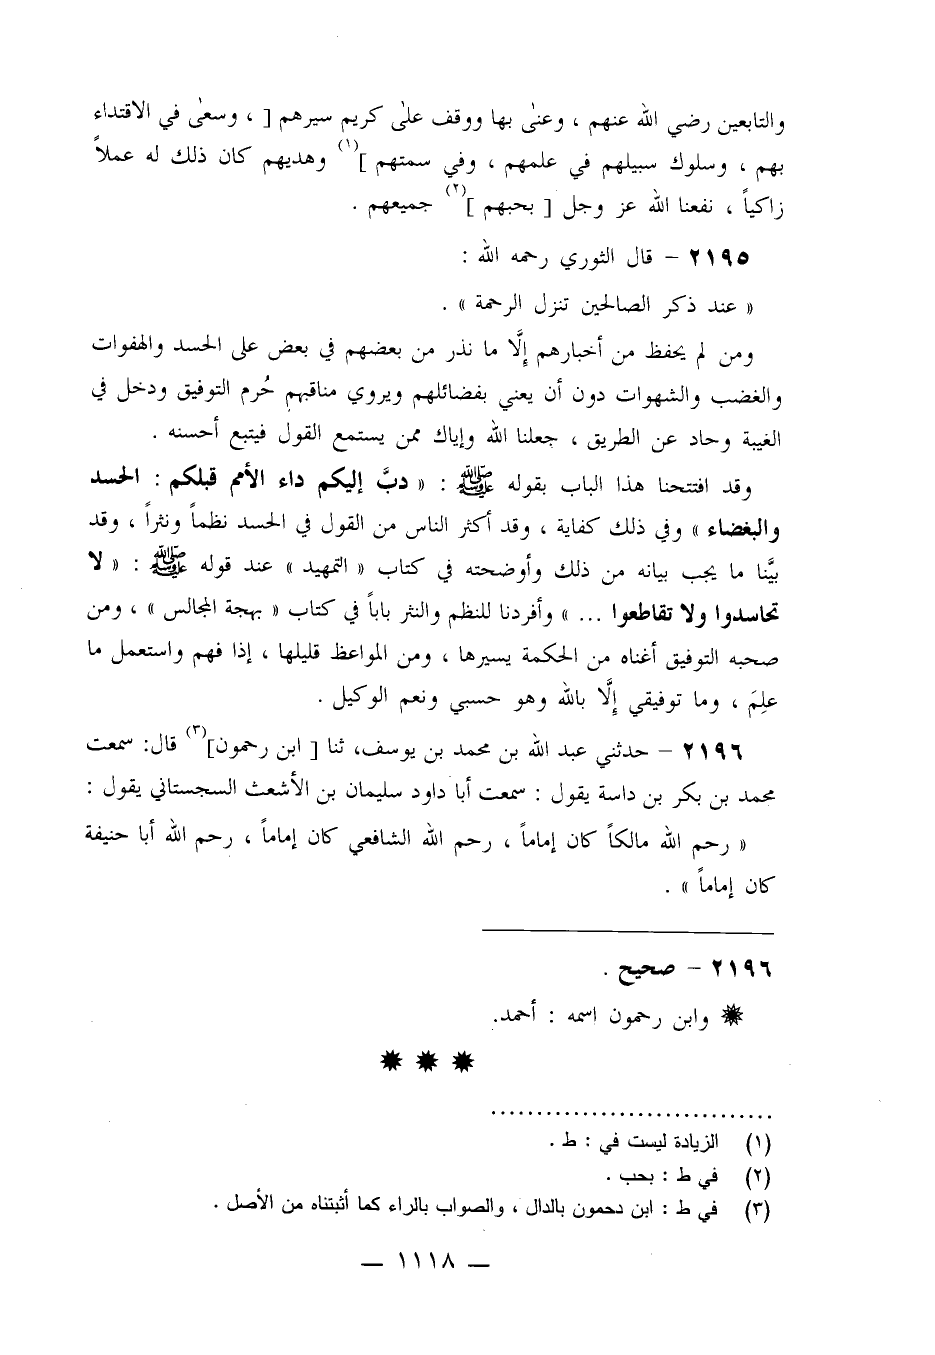 والتابعين رضي الله عنهم ، وعنىٰ بها ووقف علىٰ كريم سيرهم [ ، وسعىٰ في الاقتداء
بهم ، وسلوك سبيلهم في علمهم ، وفي سمتهم ](١) وهديهم كان ذلك له عملاً
زاكياً ، نفعنا الله عز وجل [ بحبهم ](٢) جميعهم .
٢١٩٥ – قال الثوري رحمه الله :
« عند ذكر الصالحين تنزل الرحمة » .
ومن لم يحفظ من أخبارهم إلَّا ما نذر من بعضهم في بعض على الحسد والهفوات
والغضب والشهوات دون أن يعني بفضائلهم ويروي مناقبهم حُرم التوفيق ودخل في
الغيبة وحاد عن الطريق ، جعلنا الله وإياك ممن يستمع القول فيتبع أحسنه .
وقد افتتحنا هذا الباب بقوله ﷺ : « دبَّ إليكم داء الأمم قبلكم : الحسد
والبغضاء » وفي ذلك كفاية ، وقد أكثر الناس من القول في الحسد نظماً ونثراً ، وقد
بيَّنا ما يجب بيانه من ذلك وأوضحته في كتاب « التمهيد » عند قوله ﷺ : « لا
تحاسدوا ولا تقاطعوا ... » وأفردنا للنظم والنثر باباً في كتاب « بهجة المجالس » ، ومن
صحبه التوفيق أغناه من الحكمة يسيرها ، ومن المواعظ قليلها ، إذا فهم واستعمل ما
علِمَ ، وما توفيقي إلَّا بالله وهو حسبي ونعم الوكيل .
٢١٩٦ – حدثني عبد الله بن محمد بن يوسف، ثنا [ ابن رحمون](٣) قال: سمعت
محمد بن بكر بن داسة يقول : سمعت أبا داود سليمان بن الأشعث السجستاني يقول :
« رحم الله مالكاً كان إماماً ، رحم الله الشافعي كان إماماً ، رحم الله أبا حنيفة
كان إماماً » .
٢١٩٦ – صحيح .
وابن رحمون اسمه : أحمد.
(١) الزيادة ليست في : ط .
(٢) في ط : بحب .
(٣) في ط : ابن دحمون بالدال ، والصواب بالراء كما أثبتناه من الأصل .
— ١١١٨ —